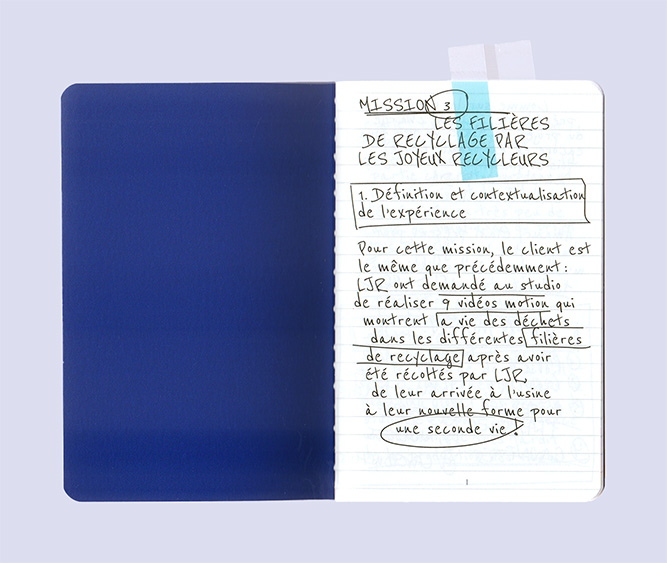 MISSION 3
LES FILIÈRES
DE RECYCLAGE PAR
LES JOYEUX RECYCLEURS
1. Définition et contextualisation
de l'expérience
Pour cette mission, le client est
le même que précédemment :
LJR ont demandé au studio
de réaliser 9 vidéos motion qui
montrent la vie des déchets
dans les différentes filières
de recyclage après avoir
été récoltés par LJR,
de leur arrivée à l'usine
à leur nouvelle forme pour
une seconde vie !
1